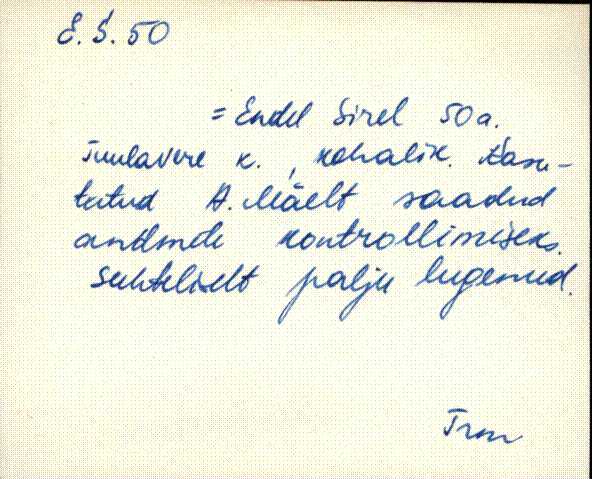 E. S. 50
= Endel Sirel 50 a.
Tuulavere k., kohalik. Kasu-
tatud A. Mäelt saadud
andmete kontrollimiseks.
Suhteliselt palju lugenud.
Trm